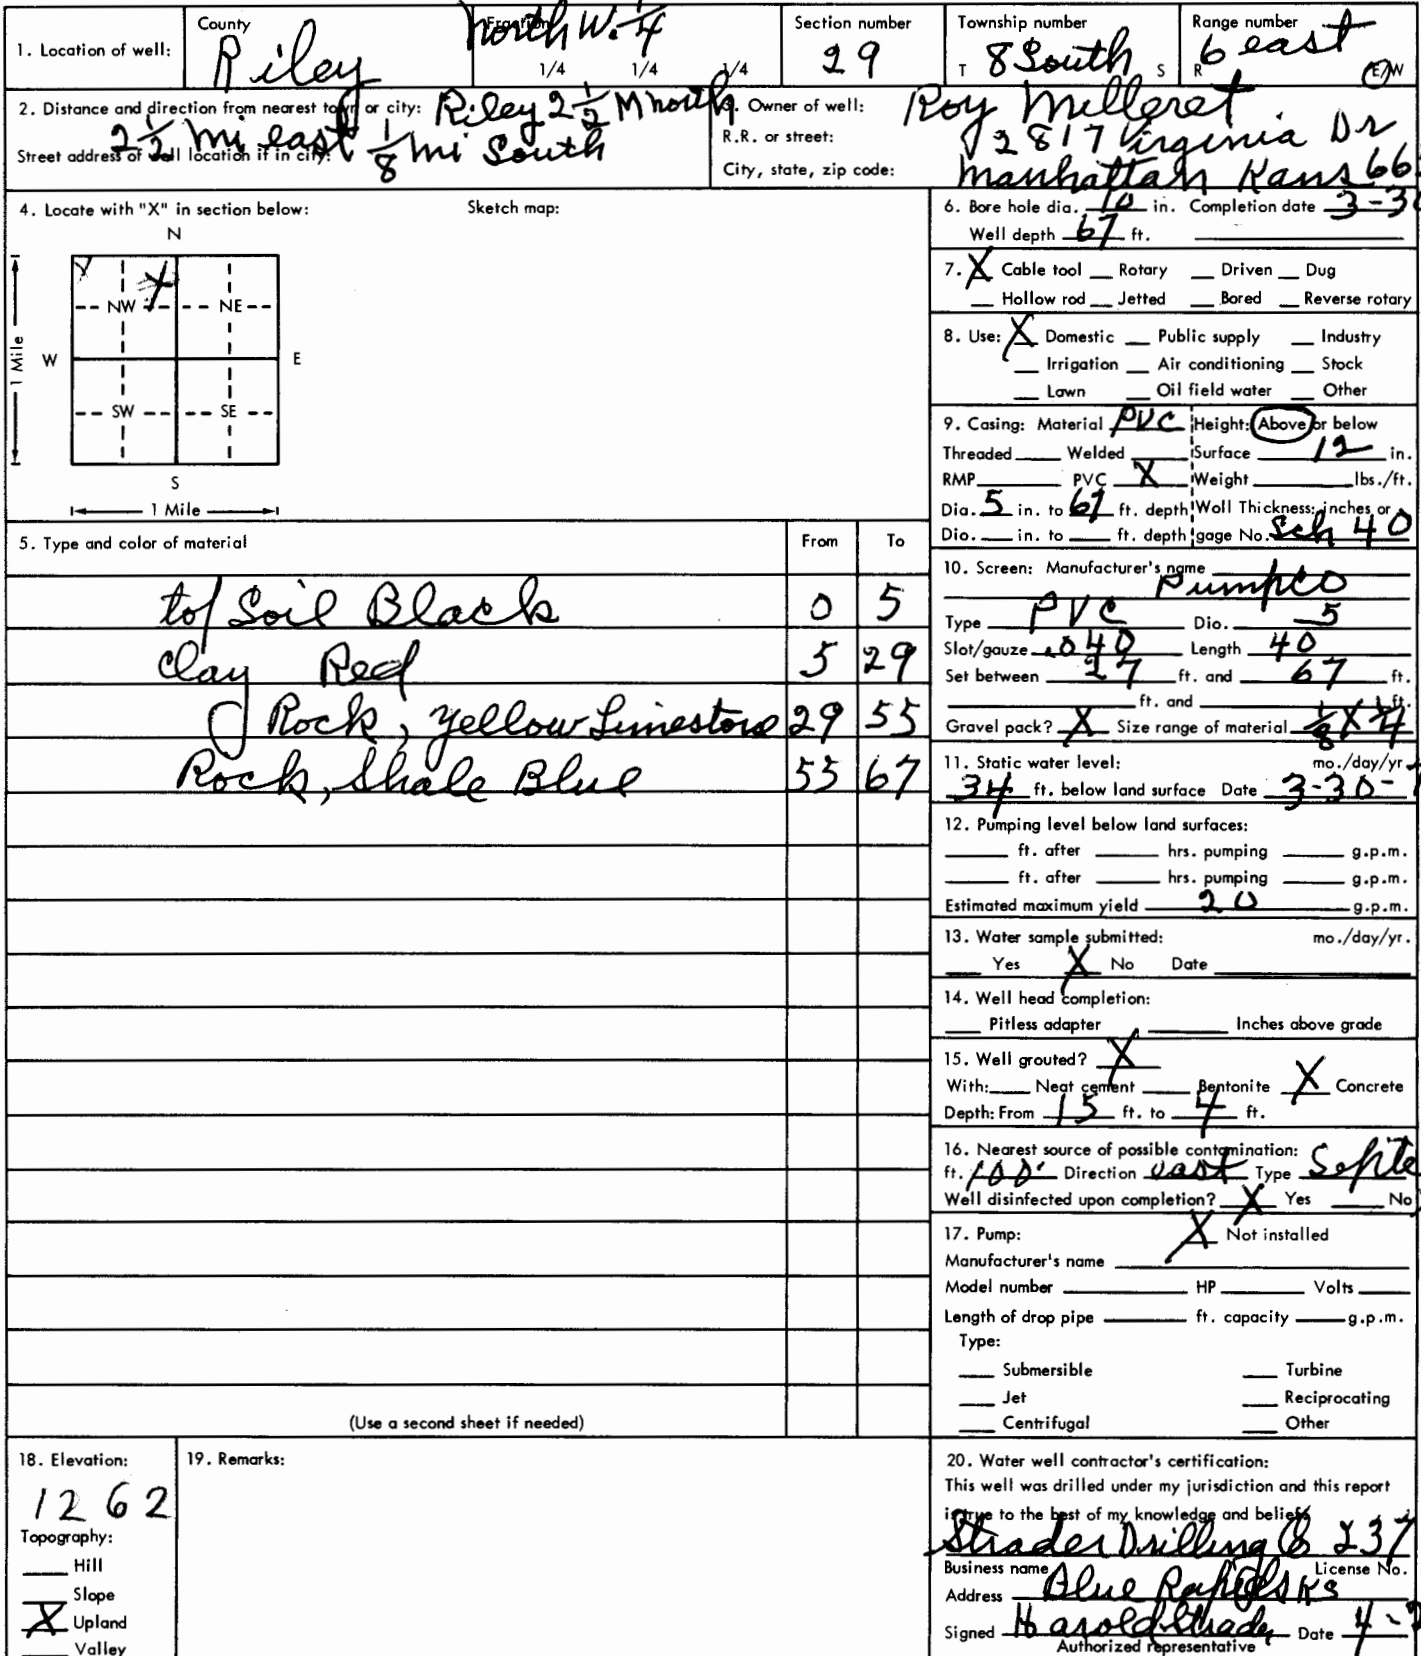 1. Location of well: County Riley Fraction North W. 1/4 1/4 1/4 1/4 Section number 29 Township number T 8 South S Range number R 6 east E/W
2. Distance and direction from nearest town or city: Riley 2 1/2 M north
2 1/2 mi east 1/8 mi South
Street address of well location if in city:
3. Owner of well: Roy Milleret
R.R. or street: 2817 Virginia Dr
City, state, zip code: Manhattan Kans 66
4. Locate with "X" in section below: Sketch map:
N
NW NE
W E
1 Mile
SW SE
S
1 Mile
5. Type and color of material From To
top Soil Black 0 5
Clay Red 5 29
Rock, Yellow Limestone 29 55
Rock, Shale Blue 55 67
(Use a second sheet if needed)
6. Bore hole dia. 10 in. Completion date 3-30
Well depth 67 ft.
7. X Cable tool Rotary Driven Dug
Hollow rod Jetted Bored Reverse rotary
8. Use: X Domestic Public supply Industry
Irrigation Air conditioning Stock
Lawn Oil field water Other
9. Casing: Material PVC Height: Above or below
Threaded Welded Surface 12 in.
RMP PVC X Weight lbs./ft.
Dia. 5 in. to 67 ft. depth Wall Thickness: inches or
Dia. in. to ft. depth gage No. Sch 40
10. Screen: Manufacturer's name
Pumpco
Type PVC Dia. 5
Slot/gauze .040 Length 40
Set between 27 ft. and 67 ft.
ft. and ft.
Gravel pack? X Size range of material 1/8 X 1/4
11. Static water level: mo./day/yr.
34 ft. below land surface Date 3-30-
12. Pumping level below land surfaces:
ft. after hrs. pumping g.p.m.
ft. after hrs. pumping g.p.m.
Estimated maximum yield 20 g.p.m.
13. Water sample submitted: mo./day/yr.
Yes X No Date
14. Well head completion:
Pitless adapter Inches above grade
15. Well grouted? X
With: Neat cement Bentonite X Concrete
Depth: From 15 ft. to 4 ft.
16. Nearest source of possible contamination:
ft. 100' Direction east Type Septe
Well disinfected upon completion? X Yes No
17. Pump: X Not installed
Manufacturer's name
Model number HP Volts
Length of drop pipe ft. capacity g.p.m.
Type:
Submersible Turbine
Jet Reciprocating
Centrifugal Other
18. Elevation:
1262
Topography:
Hill
Slope
X Upland
Valley
19. Remarks:
20. Water well contractor's certification:
This well was drilled under my jurisdiction and this report
is true to the best of my knowledge and belief.
Strader Drilling Co 237
Business name License No.
Address Blue Rapids Ks
Signed Harold Strader Date 4-
Authorized representative